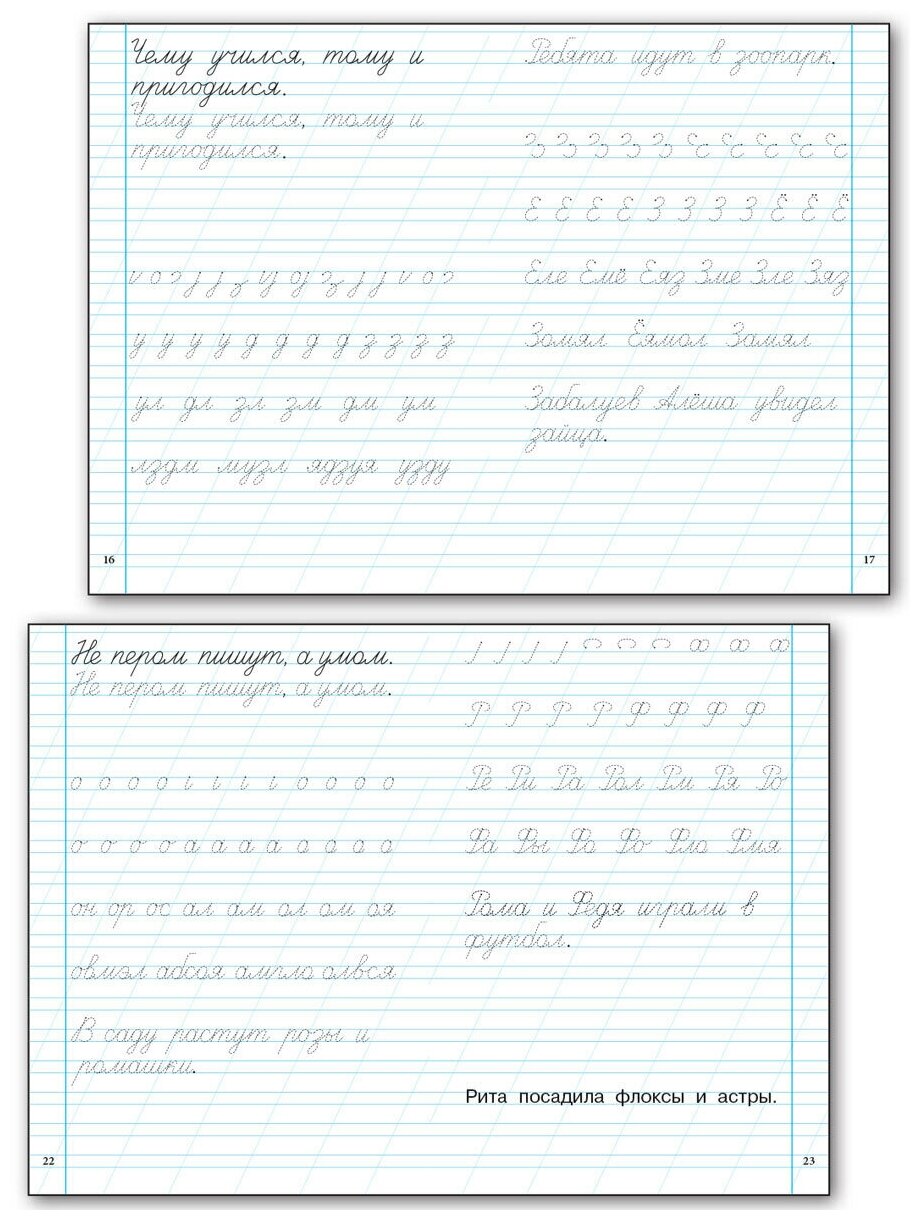 Чему учился, тому и
пригодился.
Чему учился, тому и
пригодился.
у у у у д д д д з з з з
ул дл зл зм дм ум
лздм музл ядзуя узду
16
Ребята идут в зоопарк.
Е Е Е Е З З З З Ё Ё Ё
Еле Емё Еяз Зме Зле Зяз
Зомял Ёямол Замял
Забалуев Алёша увидел
зайца.
17
Не пером пишут, а умом.
Не пером пишут, а умом.
о о о о а а а а а а а а
он ор ос ал ам ол ом оя
овмэл абсоя амгло олвся
В саду растут розы и
ромашки.
22
Р Р Р Р Ф Ф Ф Ф
Ре Ри Ра Рол Рм Ря Ро
Фа Фы Фо Фо Фло Фмя
Рома и Федя играли в
футбол.
Рита посадила флоксы и астры.
23